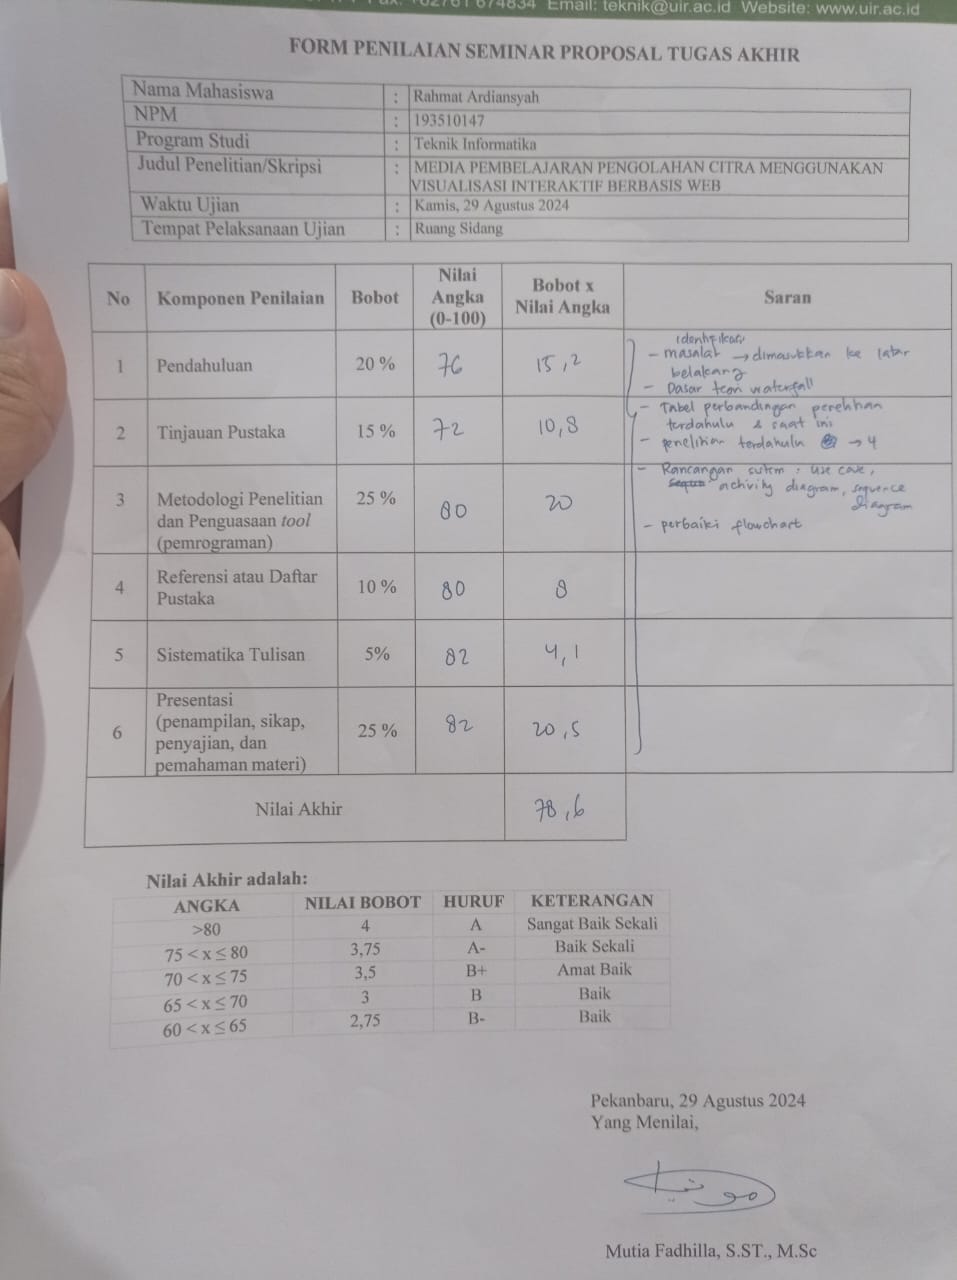 674834 Email: teknik@uir.ac.id Website: www.uir.ac.id
FORM PENILAIAN SEMINAR PROPOSAL TUGAS AKHIR
Nama Mahasiswa : Rahmat Ardiansyah
NPM : 193510147
Program Studi : Teknik Informatika
Judul Penelitian/Skripsi : MEDIA PEMBELAJARAN PENGOLAHAN CITRA MENGGUNAKAN
VISUALISASI INTERAKTIF BERBASIS WEB
Waktu Ujian : Kamis, 29 Agustus 2024
Tempat Pelaksanaan Ujian : Ruang Sidang
No Komponen Penilaian Bobot Nilai Angka (0-100) Bobot x Nilai Angka Saran
1 Pendahuluan 20 % 76 15,2
identifikasi
- masalah → dimasukkan ke latar
belakang
- Dasar teori waterfall
2 Tinjauan Pustaka 15 % 72 10,8
- Tabel perbandingan penelitian
terdahulu & saat ini
- penelitian terdahulu → 4
3 Metodologi Penelitian
dan Penguasaan tool
(pemrograman) 25 % 80 20
- Rancangan sistem : use case,
activity diagram, sequence
diagram
- perbaiki flowchart
4 Referensi atau Daftar
Pustaka 10 % 80 8
5 Sistematika Tulisan 5% 82 4,1
6 Presentasi
(penampilan, sikap,
penyajian, dan
pemahaman materi) 25 % 82 20,5
Nilai Akhir 78,6
Nilai Akhir adalah:
ANGKA NILAI BOBOT HURUF KETERANGAN
>80 4 A Sangat Baik Sekali
75 < x ≤ 80 3,75 A- Baik Sekali
70 < x ≤ 75 3,5 B+ Amat Baik
65 < x ≤ 70 3 B Baik
60 < x ≤ 65 2,75 B- Baik
Pekanbaru, 29 Agustus 2024
Yang Menilai,
Mutia Fadhilla, S.ST., M.Sc